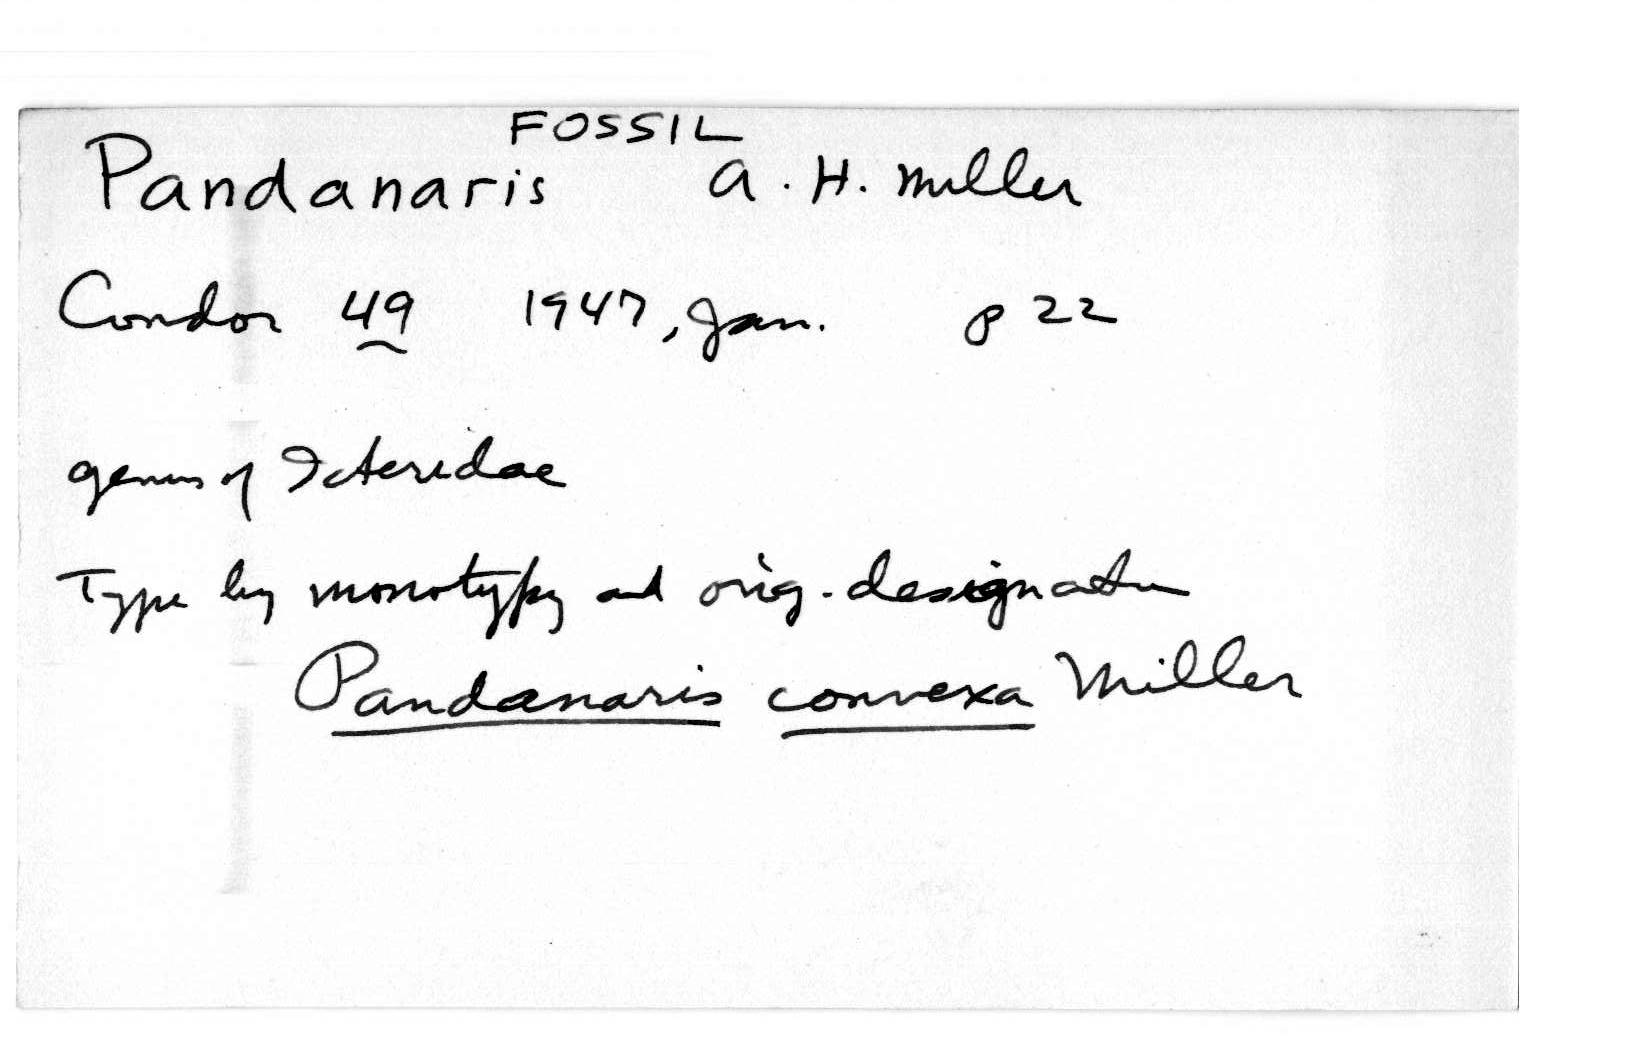 FOSSIL
Pandanaris A. H. Miller
Condor 49 1947, Jan. p 22
genus of Icteridae
Type by monotypy and orig. designation
Pandanaris convexa Miller